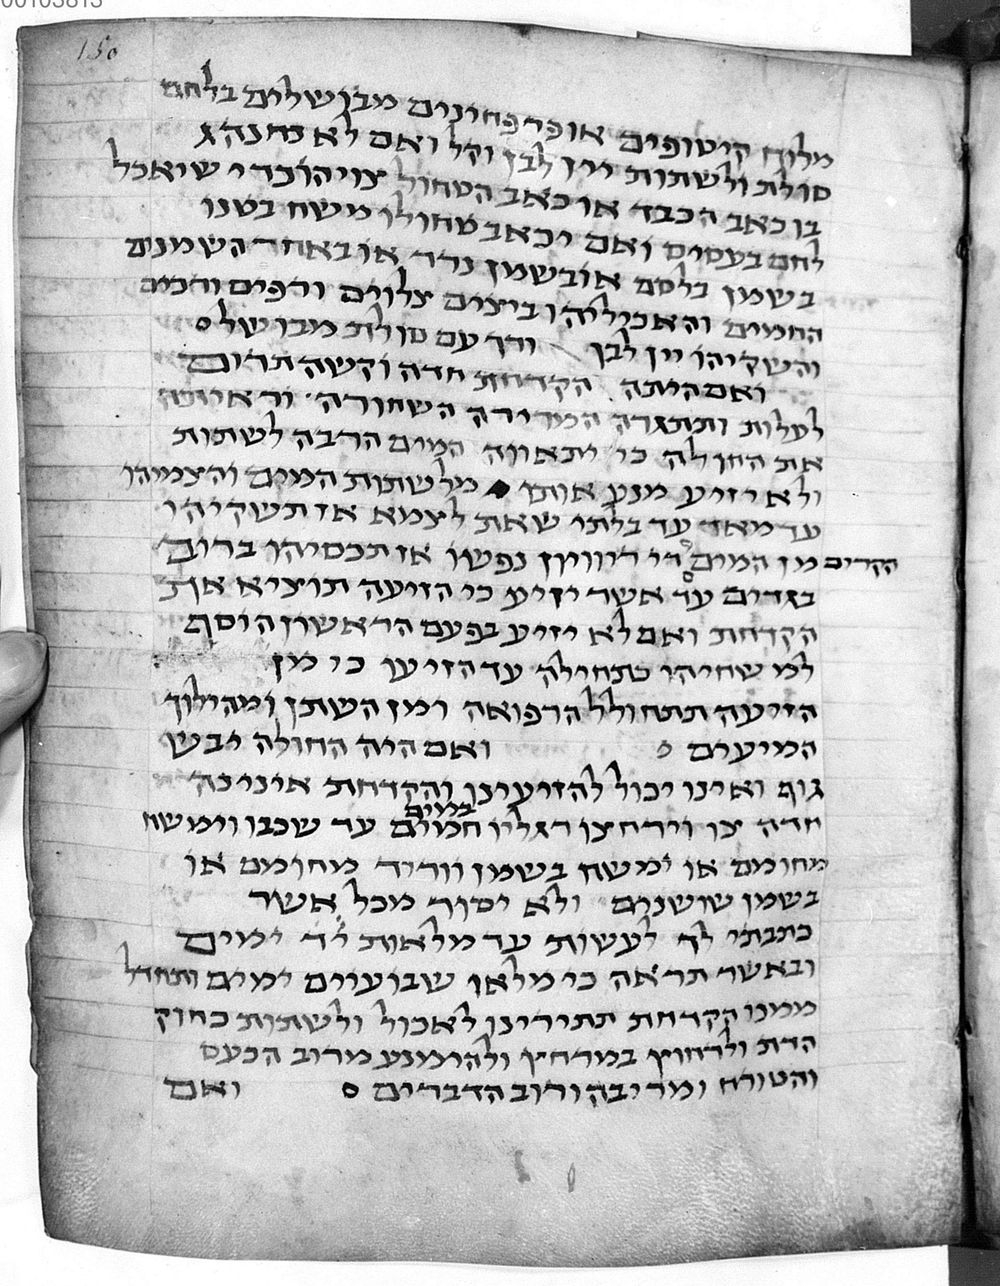 00103813
150
מלוח קיטופים או פרפחינים מבושלים בלחם
סולת ולשתות יין לבן וקל ואם לא נחנה ג
בו כאב הכבד או כאב הטחול צויהו כדי שיאכל
לחם בעסיס ואם יכאב טחולו משח בטנו
בשמן בלסם או בשמן נרד או באחד השמנים
החמים והאכיליהו ביצים צלוים ודפים והכים
והשקיהו יין לבן ודך עם סולת מבושל
ואם היתה הקדחת חדה וקשה תרום
לעלות ותתגדה המרירה השחורה וראיתה
את החולה כי יתאווה המים הרבה לשתות
ולא יזיע מנע אותו מלשתות המים והצמיהו
עד מאד עד בלתי שאת לצמא אז תשקיהו
הקרים מן המים די ריוויון נפשו אז תכסיהו ברוב
בגדים עד אשר יזיע כי הזיעה תוציא את
הקדחת ואם לא יזיע בפעם הראשון הוסף
למשחיהו כתחילה עד הזיעו כי מן
הזיעה תתחולל הרפואה ומן השתן ומהילוך
המיעים ואם היה החולה יבש
גוף ואינו יכול להזיעינו והקדחת אינינה
במים
חדה צו וירחצו רגליו חמים עד שכבו וימשח
מחומם או ימשח בשמן וורד מחומם או
בשמן שושנים ולא יסור מכל אשר
כתבתי לך לעשות עד מלאות יד ימים
ובאשר תראה כי מלאו שבועיים ימים ותחדל
ממנו הקדחת תתירינו לאכול ולשתות כחוק
הדת ולרחוץ במרחץ ולהימנע מרוב הכעס
והטורח ומריבה ורוב הדברים ואם